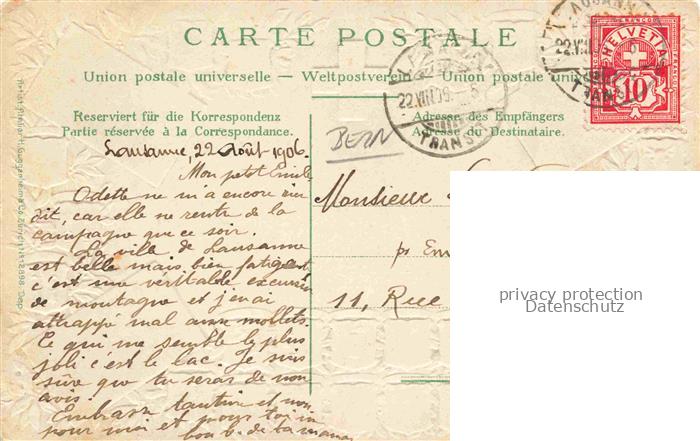 CARTE POSTALE
Union postale universelle – Weltpostverein – Union postale univers
Reserviert für die Korrespondenz
Partie réservée à la Correspondance.
Adresse des Empfängers
Adresse du Destinataire.
HELVETIA
FRANCO
10
22.VIII.06
TRANS
LAUSANNE
22.VIII
TRANS
BERN
Lausanne, 22 Août 1906.
Mon petit Emile
Odette ne m'a encore rien
dit, car elle ne rentre de la
campagne que ce soir.
La ville de Lausanne
est belle mais bien fatigant
c'est une véritable excursion
de montagne et j'en ai
attrappé mal aux mollets.
Ce qui me semble le plus
joli c'est le lac. Je suis
sûre que tu seras de mon
avis.
Embrasse tantine et
pour moi et pour toi un
bon b. de ta maman
Monsieur
pr Em
11, Rue
privacy protection
Datenschutz